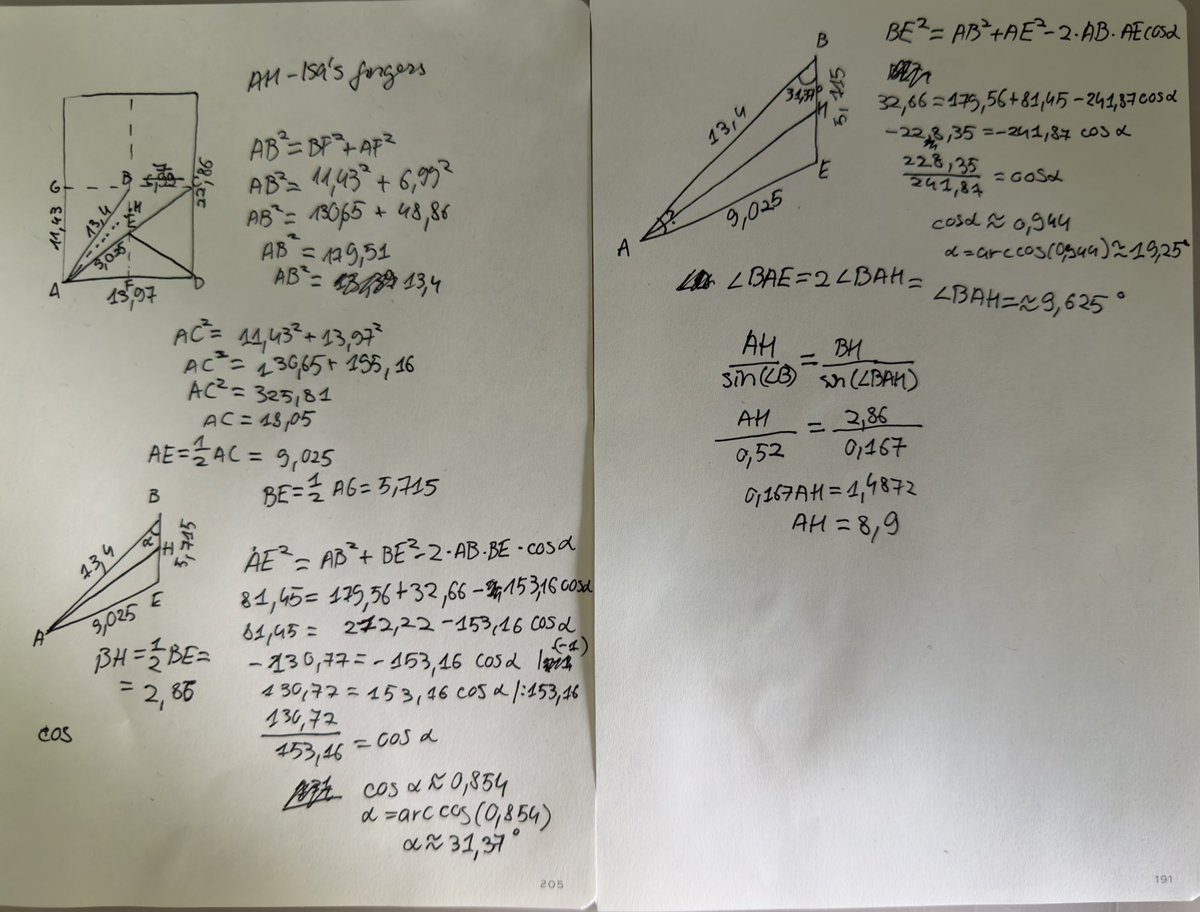 AH - Isa's fingers
AB² = BF² + AF²
AB² = 11,43² + 6,99²
AB² = 130,65 + 48,86
AB² = 179,51
AB² = 13,4
G
B
7
C
22,86
11,43
13,4
H
E
9,025
A
F
D
13,97
AC² = 11,43² + 13,97²
AC² = 130,65 + 195,16
AC² = 325,81
AC = 18,05
AE = ½ AC = 9,025
BE = ½ AG = 5,715
B
α
H
5,715
13,4
E
9,025
A
BH = ½ BE =
= 2,86
cos
AE² = AB² + BE² - 2·AB·BE·cosα
81,45 = 179,56 + 32,66 - 153,16 cosα
81,45 = 212,22 - 153,16 cosα
-130,77 = -153,16 cosα |·(-1)
130,77 = 153,16 cosα |:153,16
130,77/153,16 = cosα
cosα ≈ 0,854
α = arccos(0,854)
α ≈ 31,37°
205
B
31,37°
H
5,715
13,4
E
9,025
A
?
BE² = AB² + AE² - 2·AB·AE cosα
32,66 = 179,56 + 81,45 - 241,87 cosα
-228,35 = -241,87 cosα
228,35/241,87 = cosα
cosα ≈ 0,944
α = arccos(0,944) ≈ 19,25°
∠BAE = 2∠BAH =
∠BAH = ≈ 9,625°
AH/sin(∠B) = BH/sin(∠BAH)
AH/0,52 = 2,86/0,167
0,167AH = 1,4872
AH = 8,9
191